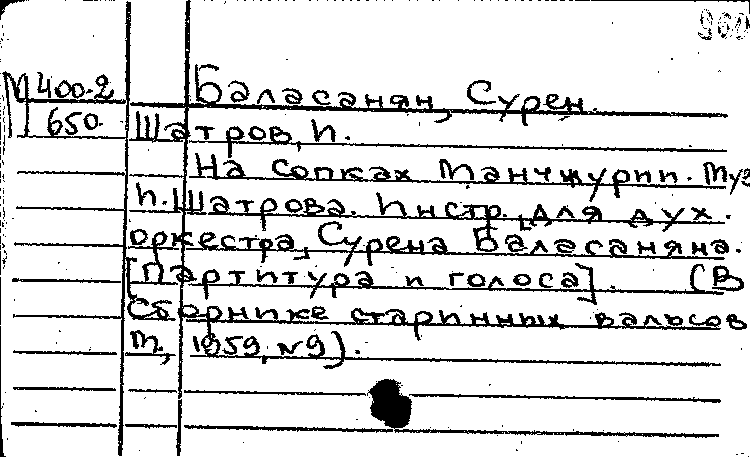 960
М 400-2 Баласанян, Сурен.
650. Шатров, И.
На сопках Манчжурии. Муз
И. Шатрова. Инстр. для дух.
оркестра, Сурена Баласаняна.
[Партитура и голоса]. (В
Сборнике старинных вальсов
М., 1959, №9).